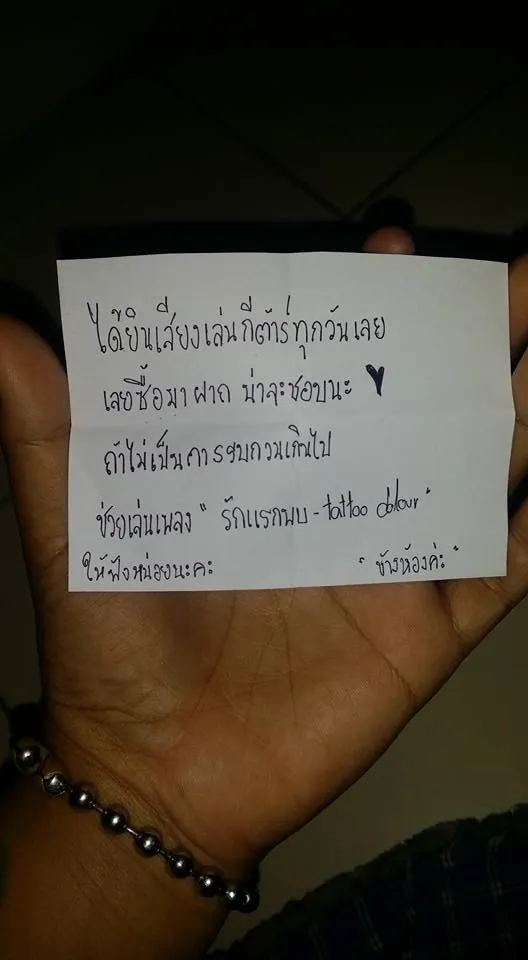 ได้ยินเสียงเล่นกีต้าร์ทุกวันเลย
เลยซื้อมาฝาก น่าจะชอบนะ ♥
ถ้าไม่เป็นการรบกวนเกินไป
ช่วยเล่นเพลง "รักแรกพบ - tattoo colour"
ให้ฟังหน่อยนะคะ "ข้างห้องค่ะ"